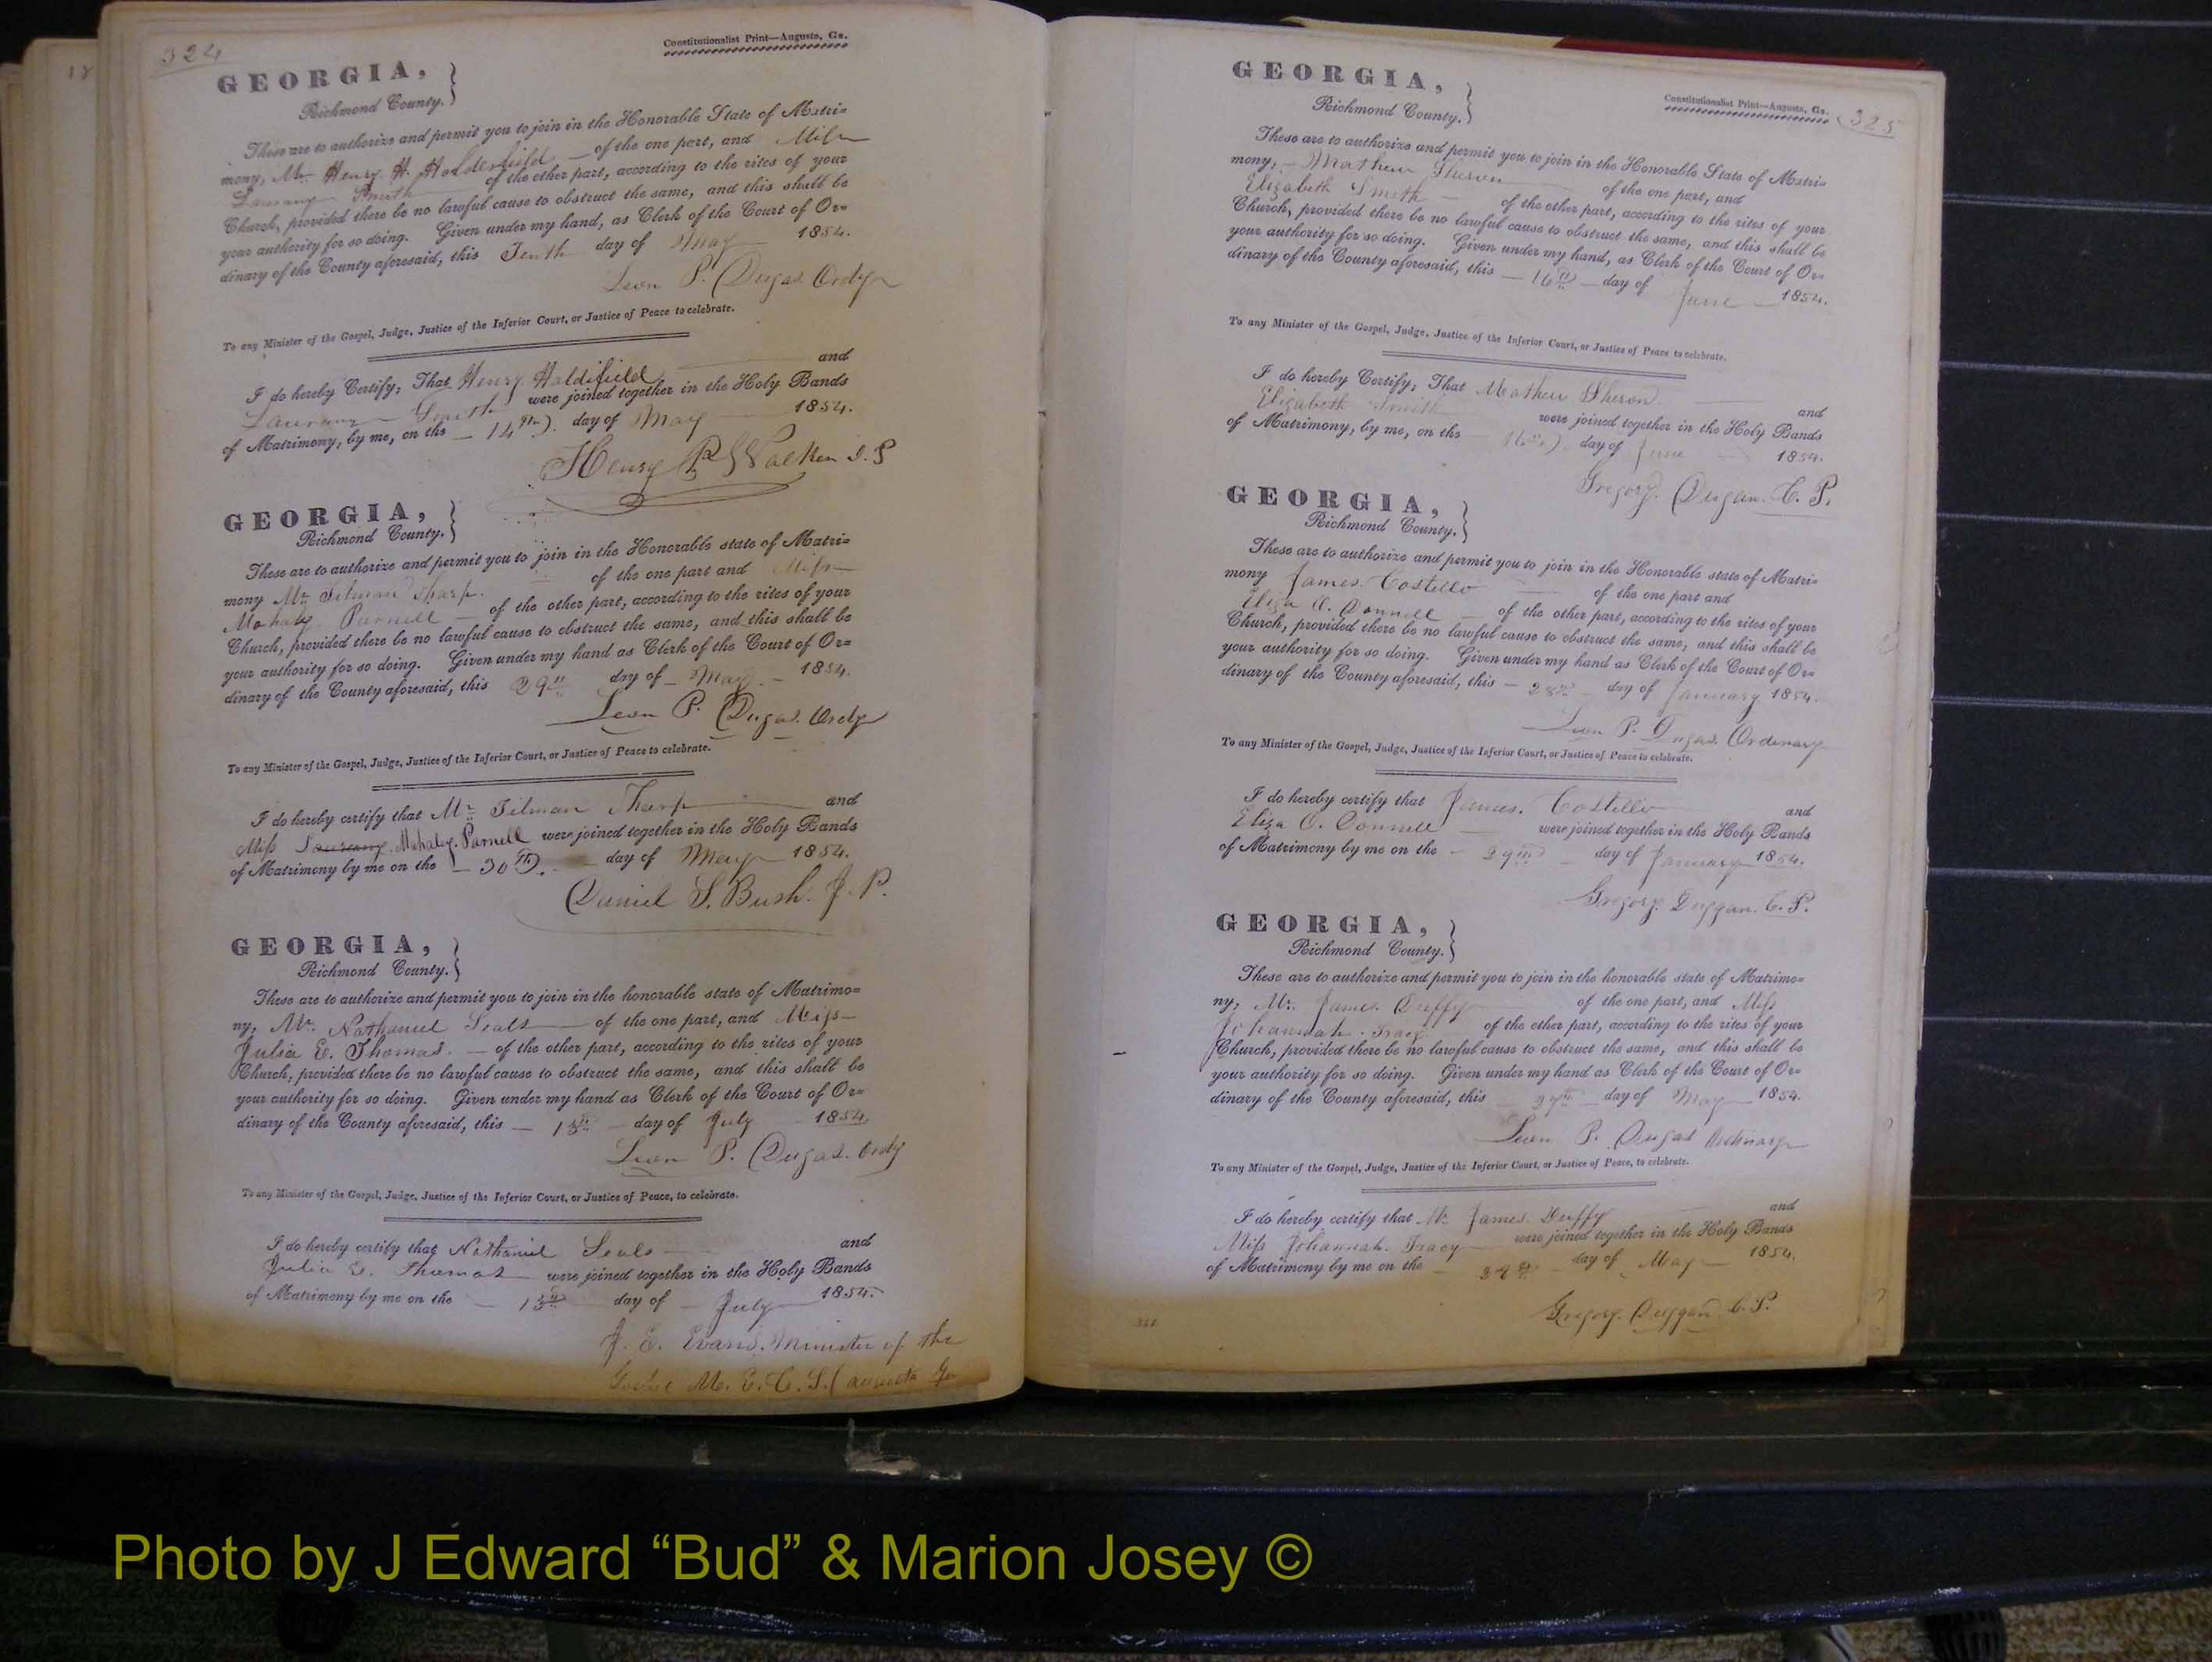 324
Constitutionalist Print—Augusta, Ga.
GEORGIA,
Richmond County.
These are to authorize and permit you to join in the Honorable State of Matri=
mony, Mr. Henry H. Holdesfield of the one part, and Miss
Smith of the other part, according to the rites of your
Church, provided there be no lawful cause to obstruct the same, and this shall be
your authority for so doing. Given under my hand, as Clerk of the Court of Or=
dinary of the County aforesaid, this Tenth day of May 1854.
Leon P. Dugas Ordy
To any Minister of the Gospel, Judge, Justice of the Inferior Court, or Justice of Peace to celebrate.
I do hereby Certify; That Henry Holdifield and
Smith were joined together in the Holy Bands
of Matrimony, by me, on the 14th day of May 1854.
Henry P. Walker J. P
GEORGIA,
Richmond County.
These are to authorize and permit you to join in the Honorable state of Matri=
mony Mr Tilman Tharp. of the one part and Miss
Mahaly Parnell of the other part, according to the rites of your
Church, provided there be no lawful cause to obstruct the same, and this shall be
your authority for so doing. Given under my hand as Clerk of the Court of Or=
dinary of the County aforesaid, this 29th day of May 1854.
Leon P. Dugas. Ordy
To any Minister of the Gospel, Judge, Justice of the Inferior Court, or Justice of Peace to celebrate.
I do hereby certify that Mr Tilman Tharp and
Miss Mahaley Parnell were joined together in the Holy Bands
of Matrimony by me on the 30th. day of May 1854.
Daniel S. Bush. J. P.
GEORGIA,
Richmond County.
These are to authorize and permit you to join in the honorable state of Matrimo=
ny, Mr. Nathaniel Seals of the one part, and Miss
Julia E. Thomas. of the other part, according to the rites of your
Church, provided there be no lawful cause to obstruct the same, and this shall be
your authority for so doing. Given under my hand as Clerk of the Court of Or=
dinary of the County aforesaid, this 13th day of July 1854.
Leon P. Dugas. Ordy
To any Minister of the Gospel, Judge, Justice of the Inferior Court, or Justice of Peace, to celebrate.
I do hereby certify that Nathaniel Seals and
Julia E. Thomas were joined together in the Holy Bands
of Matrimony by me on the 13th day of July 1854.
J. E. Evans. Minister of the
Gospel M. E. C. S. (Augusta Ga
GEORGIA,
Richmond County.
Constitutionalist Print—Augusta, Ga.
325
These are to authorize and permit you to join in the Honorable State of Matri=
mony, Mathew Sheron of the one part, and
Elizabeth Smith of the other part, according to the rites of your
Church, provided there be no lawful cause to obstruct the same, and this shall be
your authority for so doing. Given under my hand, as Clerk of the Court of Or=
dinary of the County aforesaid, this 16th day of June 1854.
To any Minister of the Gospel, Judge, Justice of the Inferior Court, or Justice of Peace to celebrate.
I do hereby Certify; That Mathew Sheron and
Elizabeth Smith were joined together in the Holy Bands
of Matrimony, by me, on the 16th day of June 1854.
Gregory. Dugan. C. P.
GEORGIA,
Richmond County.
These are to authorize and permit you to join in the Honorable state of Matri=
mony James. Costello of the one part and
Eliza O. Connell of the other part, according to the rites of your
Church, provided there be no lawful cause to obstruct the same, and this shall be
your authority for so doing. Given under my hand as Clerk of the Court of Or=
dinary of the County aforesaid, this 28th day of January 1854.
Leon P. Dugas. Ordinary
To any Minister of the Gospel, Judge, Justice of the Inferior Court, or Justice of Peace to celebrate.
I do hereby certify that James. Costello and
Eliza O. Connell were joined together in the Holy Bands
of Matrimony by me on the 29th day of January 1854.
Gregory. Duggan. C. P.
GEORGIA,
Richmond County.
These are to authorize and permit you to join in the honorable state of Matrimo=
ny, Mr. James. Duffy of the one part, and Miss
Johannah. Tracy of the other part, according to the rites of your
Church, provided there be no lawful cause to obstruct the same, and this shall be
your authority for so doing. Given under my hand as Clerk of the Court of Or=
dinary of the County aforesaid, this 27th day of May 1854.
Leon P. Dugas Ordinary
To any Minister of the Gospel, Judge, Justice of the Inferior Court, or Justice of Peace, to celebrate.
I do hereby certify that Mr. James. Duffy and
Miss Johannah. Tracy were joined together in the Holy Bands
of Matrimony by me on the day of May 1854.
Gregory. Duggan. C. P.
Photo by J Edward “Bud” & Marion Josey ©